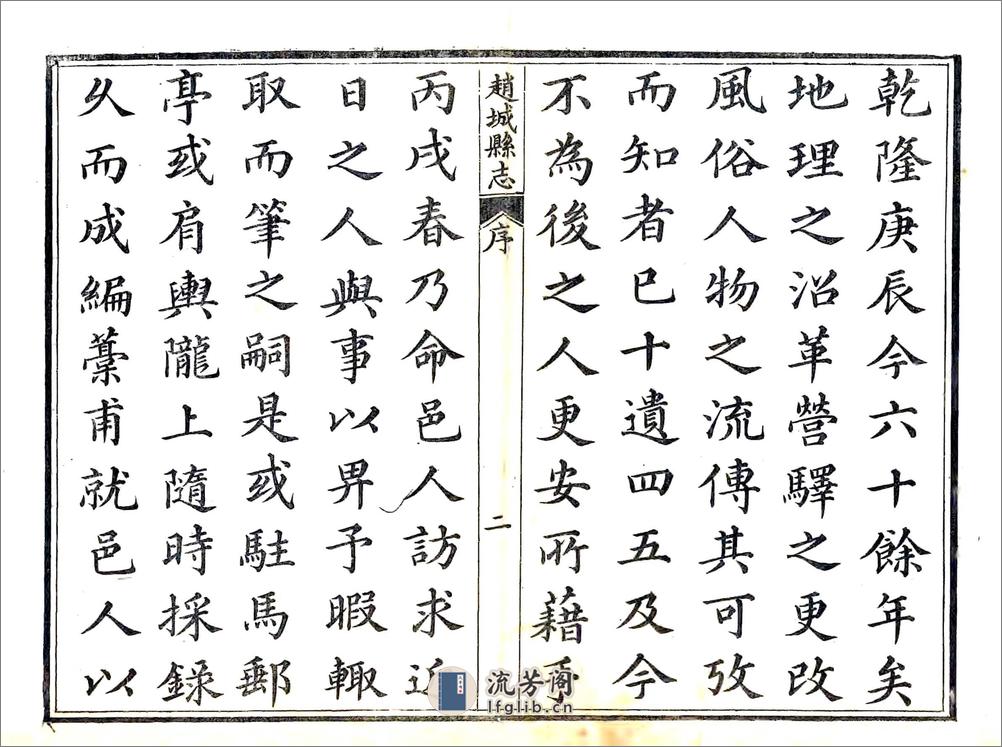 乾隆庚辰今六十餘年矣
地理之沿革營驛之更改
風俗人物之流傳其可攷
而知者已十遺四五及今
不為後之人更安所藉手
趙城縣志
序
二
丙戌春乃命邑人訪求近
日之人與事以畀予暇輙
取而筆之嗣是或駐馬郵
亭或肩輿隴上隨時採錄
久而成編藁甫就邑人以
流芳阁
lfglib.cn